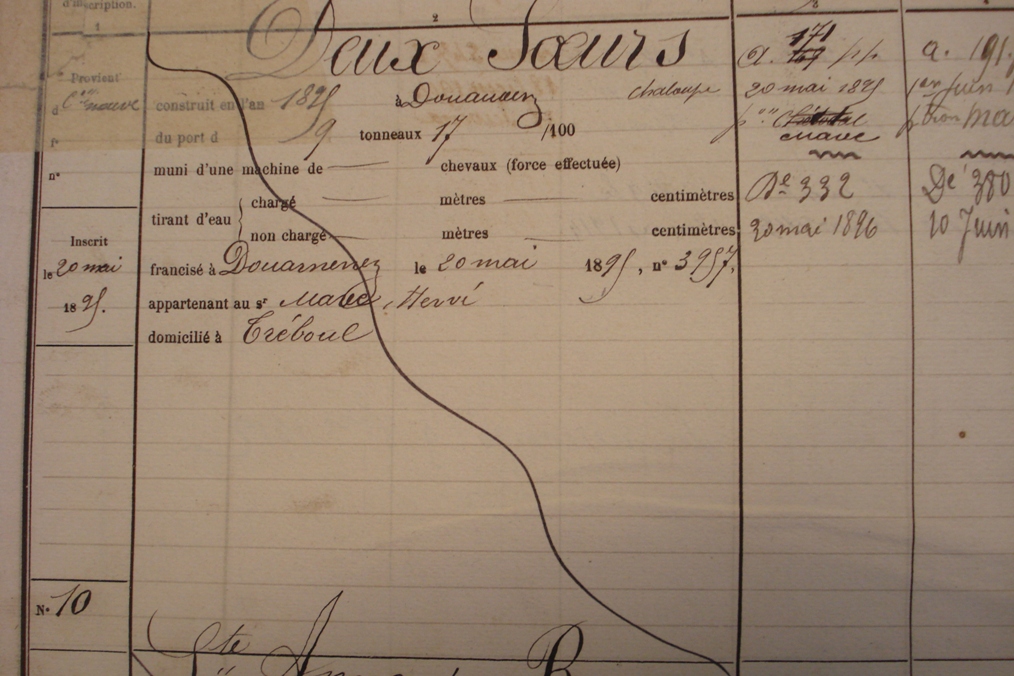 d'inscription.
1
2
Deux Sœurs
Provient
d Con neuve
construit en l'an 1895 à Douarnenez chaloupe
du port d 9 tonneaux 17 /100
n°
muni d'une machine de chevaux (force effectuée)
tirant d'eau { chargé mètres centimètres
non chargé mètres centimètres
Inscrit
le 20 mai
1895.
francisé à Douarnenez le 20 mai 1895, n° 3957.
appartenant au sr Marec, Hervé
domicilié à Tréboul
a. 171 pp
20 mai 1895
pon
Marec
Dé 332
20 mai 1896
a. 191.
1er Juin 1
ptron Ma
Dé 380
10 Juin
N° 10
Ste Anne